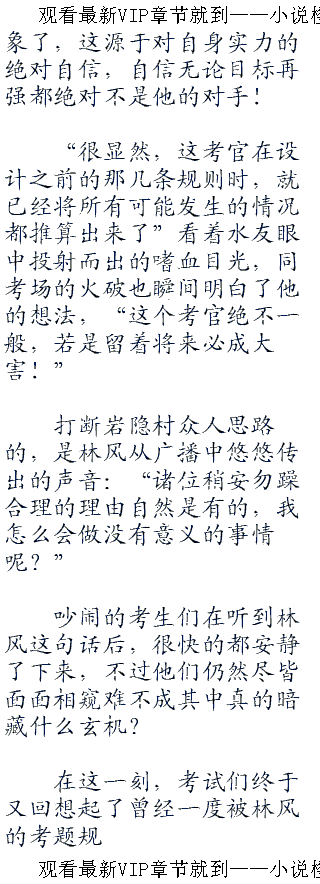 观看最新VIP章节就到——小说
象了，这源于对自身实力的
绝对自信，自信无论目标再
强都绝对不是他的对手！
“很显然，这考官在设
计之前的那几条规则时，就
已经将所有可能发生的情况
都推算出来了”看着水友眼
中投射而出的嗜血目光，同
考场的火破也瞬间明白了他
的想法，“这个考官绝不一
般，若是留着将来必成大
害！”
打断岩隐村众人思路
的，是林风从广播中悠悠传
出的声音：“诸位稍安勿躁
合理的理由自然是有的，我
怎么会做没有意义的事情
呢？”
吵闹的考生们在听到林
风这句话后，很快的都安静
了下来，不过他们仍然尽皆
面面相窥难不成其中真的暗
藏什么玄机？
在这一刻，考试们终于
又回想起了曾经一度被林风
的考题规
观看最新VIP章节就到——小说